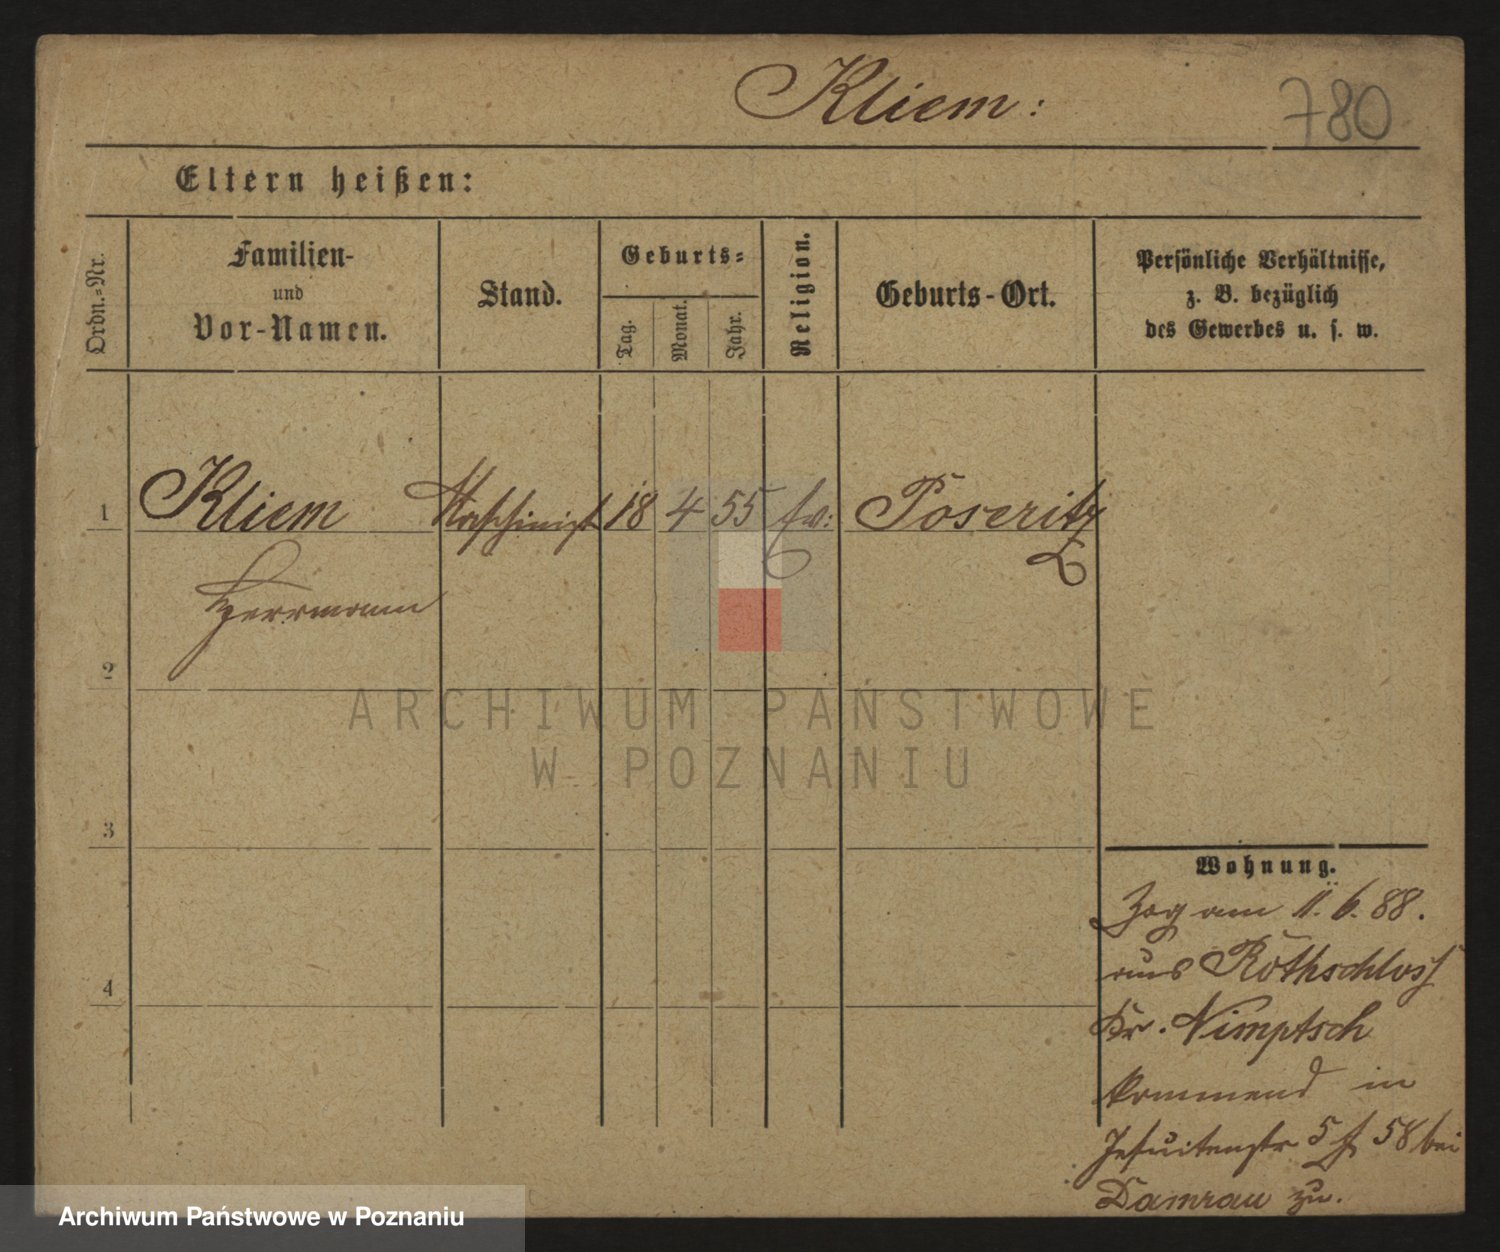 Kliem:
780
Eltern heißen:
Ordn.-Nr.
Familien-
und
Vor-Namen.
Stand.
Geburts-
Tag.
Monat.
Jahr.
Religion.
Geburts-Ort.
Persönliche Verhältnisse,
z. B. bezüglich
des Gewerbes u. s. w.
1
Kliem
Maschinist
18
4
55
ev:
Poseritz
Herrmann
2
3
4
Wohnung.
Zog am 11. 6. 88.
aus Rothschloss
Kr. Nimptsch
kommend in
Jesuitenstr 5 58 bei
Damrau zu.
ARCHIWUM PAŃSTWOWE
W POZNANIU
Archiwum Państwowe w Poznaniu